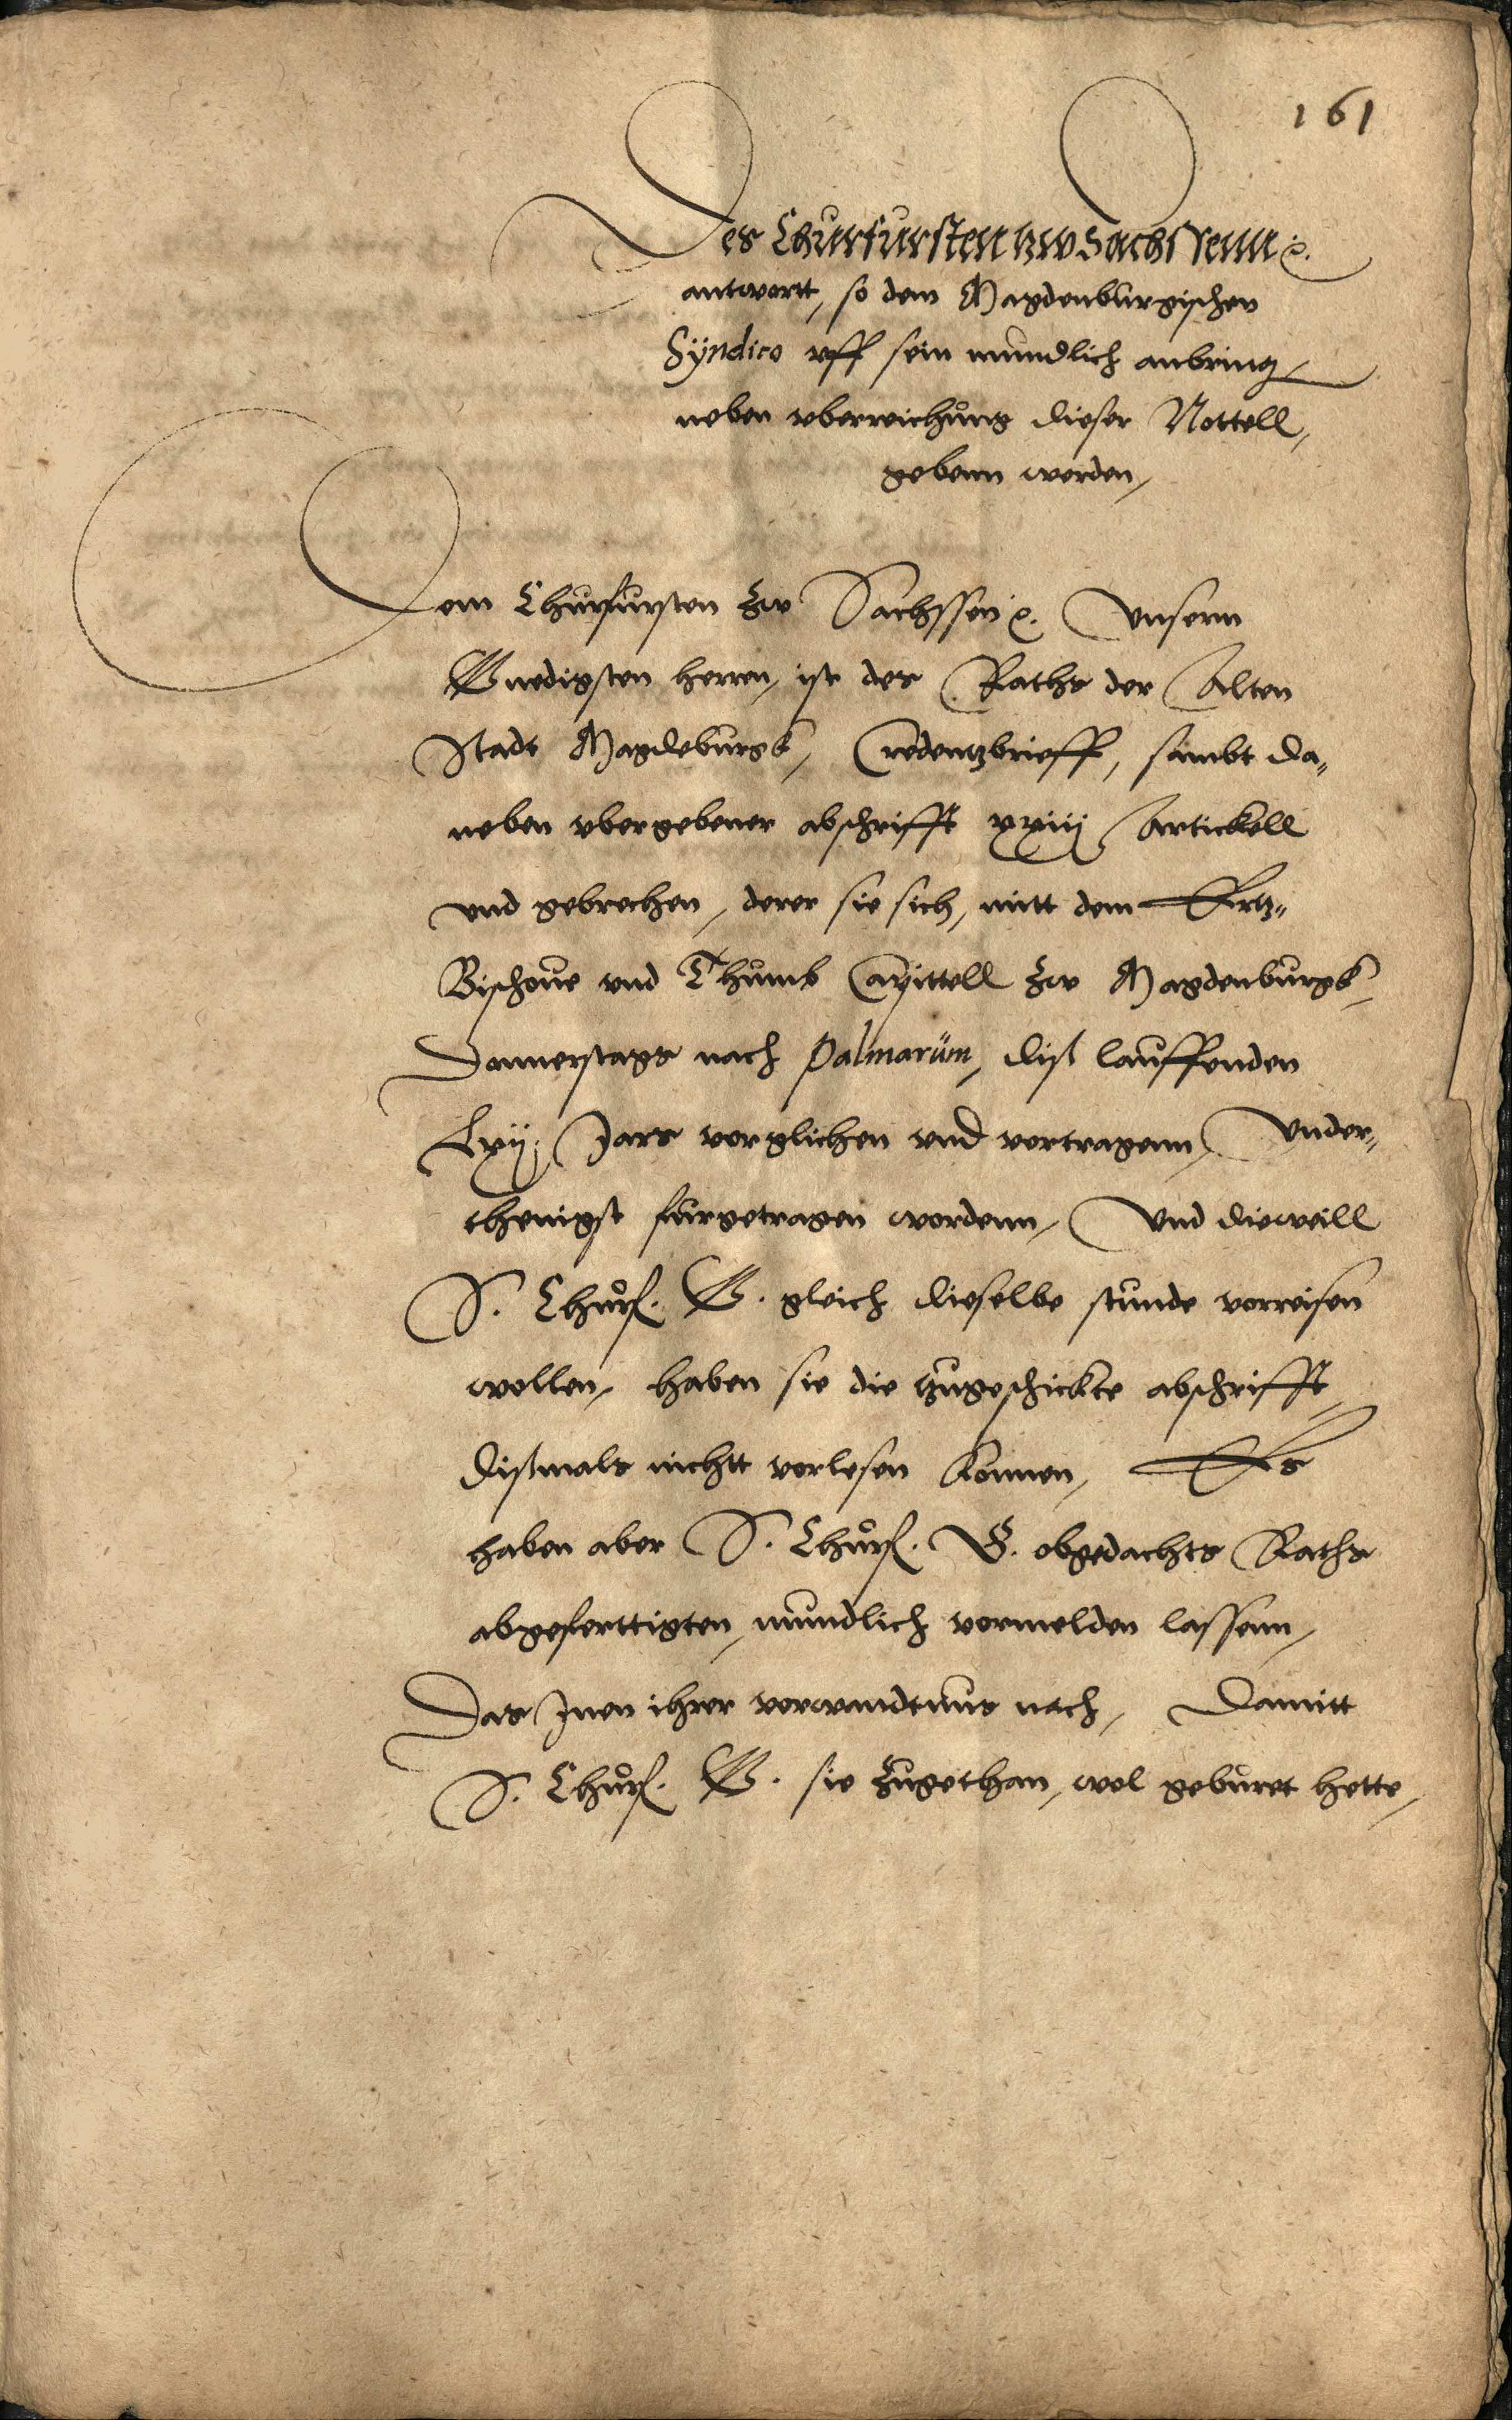 161
Des Churfursten tzw Sachssenn ꝛc.
antwortt, so dem Magdenburgischen
Syndico vff sein mundlich anbring,
neben vberreichung dieser Nottell,
gebenn worden,
Dem Churfursten Zw Sachssen ꝛc. Vnserm
Gnedigsten herren, ist des Raths der Alten
Stadt Magdeburgk, Credentzbrieff, sambt da„
neben vbergebener abschrifft xxiij Artickell
vnd gebrechen, derer sie sich, mitt dem Ertz„
Bischoue vnd Thumb Capittell Zw Magdenburgk,
Donnerstags nach Palmarum, diß lauffenden
Lxij. Jars verglichen vnd vertragenn, Vnder„
thenigst furgetragen wordenn, Vnd dieweill
S. Churf. G. gleich dieselbe stunde vorreisen
wollen, haben sie die zugeschickte abschrifft,
dißmals nichtt vorlesen konnen, Es
haben aber S. Churf. G. obgedachts Raths
abgeferttigten, mundlich vormelden lassenn,
Das Inen ihrer vorwandtnus nach, Damitt
S. Churf. G. sie zugethan, wol geburet hette,